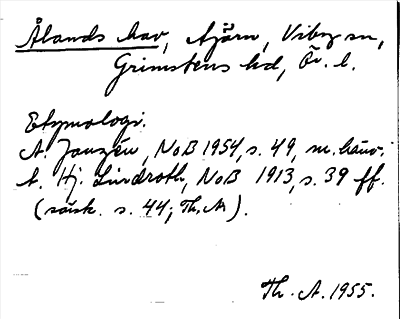 Ålands hav, sjörn, Viby sn,
Grimstens hd, Ör. l.
Etymologi.
A. Janzén, NoB 1954, s. 49, m. hänv.
t. Hj. Lindroth, NoB 1913, s. 39 ff.
(särsk. s. 44; Th. A).
Th. A. 1955.